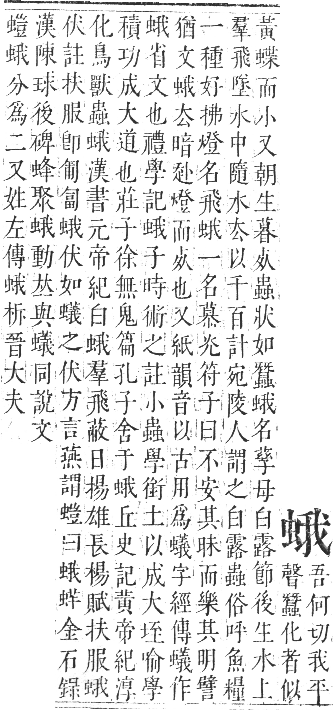 蛾
吾何切我平
聲蠶化者似
黃蝶而小又朝生暮死蟲狀如蠶蛾名孳母白露節後生水上
羣飛墜水中隨水去以千百計宛陵人謂之白露蟲俗呼魚糧
一種好拂燈名飛蛾一名慕光符子曰不安其昧而樂其明譬
猶文蛾去暗赴燈而死也又紙韻音以古用爲蟻字經傳蟻作
蛾省文也禮學記蛾子時術之註小蟲學銜土以成大垤喻學
積功成大道也莊子徐無鬼篇孔子舍于蛾丘史記黃帝紀淳
化鳥獸蟲蛾漢書元帝紀白蛾羣飛蔽日揚雄長楊賦扶服蛾
伏註扶服卽匍匐蛾伏如蟻之伏方言燕謂螘曰蛾蛘金石錄
漢陳球後碑蜂聚蛾動𠀤與蟻同說文
螘蛾分爲二又姓左傳蛾析晉大夫